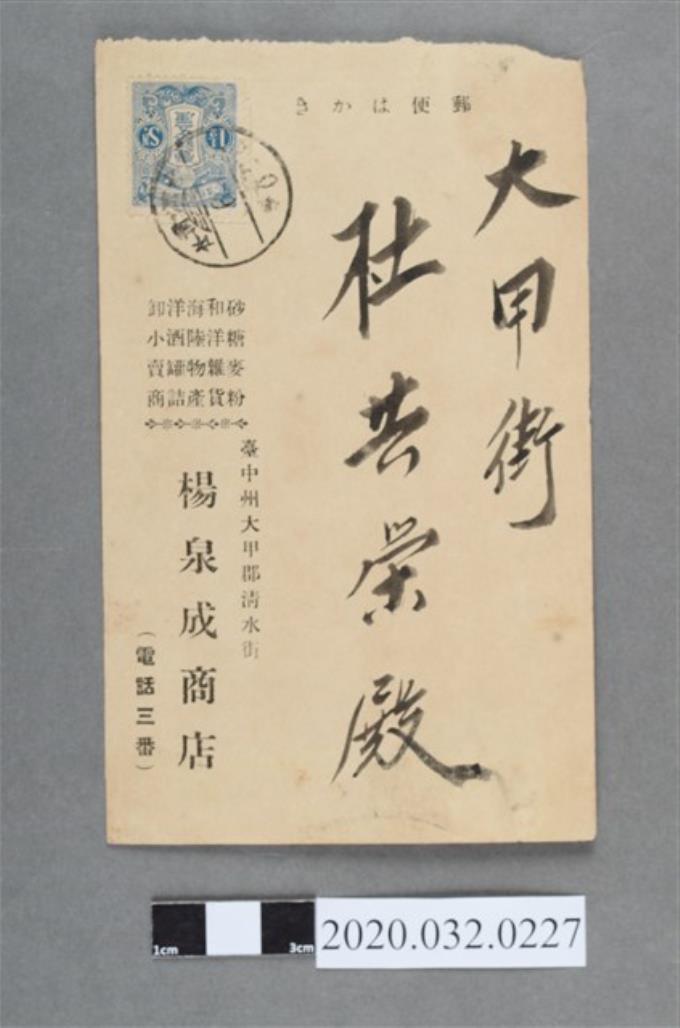 郵便はかき
大甲街
杜共榮殿
砂糖麥粉
和洋雜貨
海陸物產
洋酒罐詰
卸小賣商
臺中州大甲郡清水街
楊泉成商店
(電話三番)
1cm
3cm
2020.032.0227